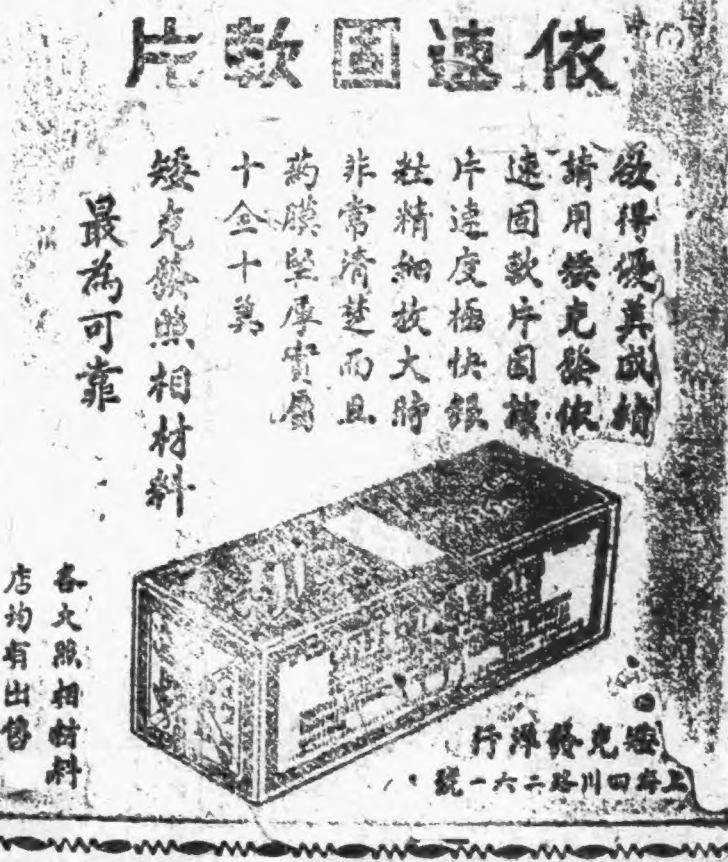 依速固軟片
欲得優美成績
請用矮克發依
速固軟片因該
片速度極快銀
粒精細放大時
非常清楚而且
葯膜堅厚實屬
十全十美
矮克發照相材料
最為可靠
各大照相材料
店均有出售
矮克發洋行
上海四川路二六一號